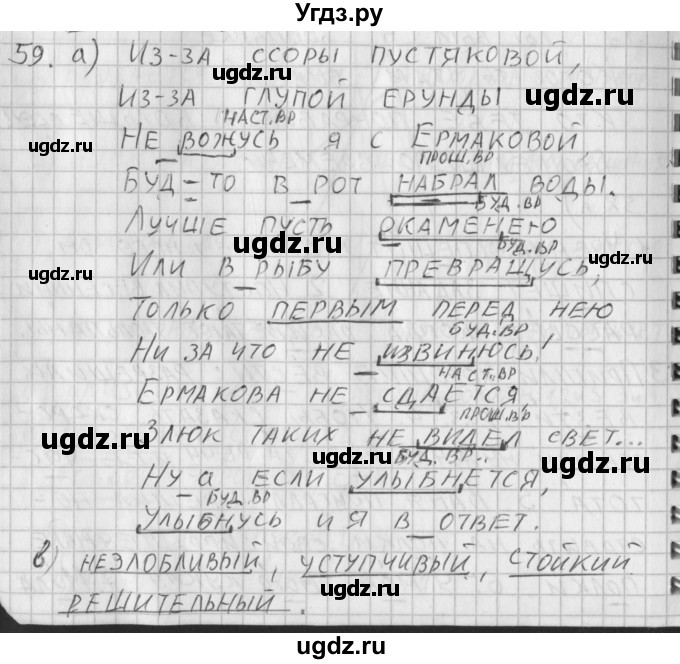 Угдз.ру
59. а) Из-за ссоры пустяковой,
Из-за глупой ерунды
наст.вр
Не вожусь я с Ермаковой,
прош.вр
Буд-то в рот набрал воды.
буд.вр
Лучше пусть окаменею
буд.вр
Или в рыбу превращусь,
Только первым перед нею
буд.вр
Ни за что не извинюсь!
наст.вр
Ермакова не сдается,
прош.вр
Злюк таких не видел свет...
буд.вр..
Ну а если улыбнется,
буд.вр
Улыбнусь и я в ответ.
в) незлобливый, уступчивый, стойкий
решительный.
Угдз.ру